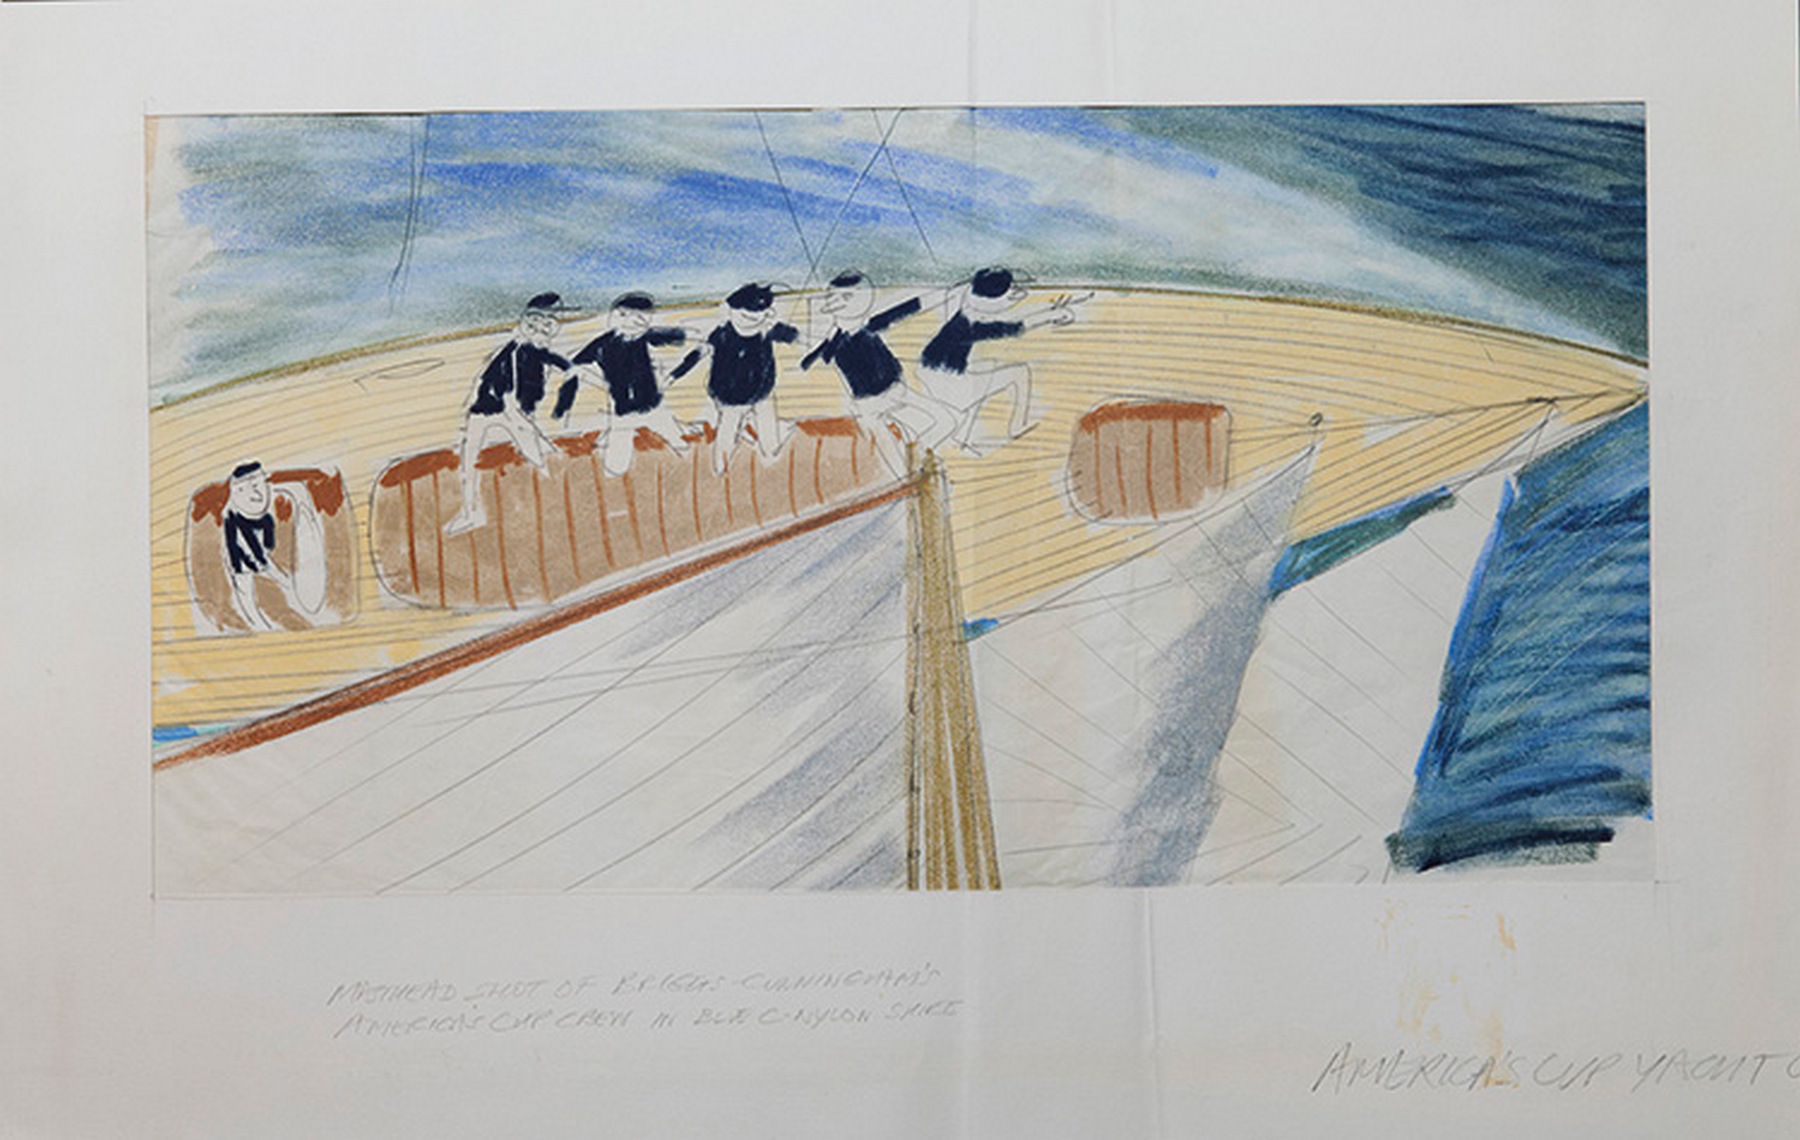 MASTHEAD SHOT OF BRIGGS-CUNNINGHAM'S
AMERICA'S CUP CREW IN BLUE C-NYLON SHIRT
AMERICA'S CUP YACHT